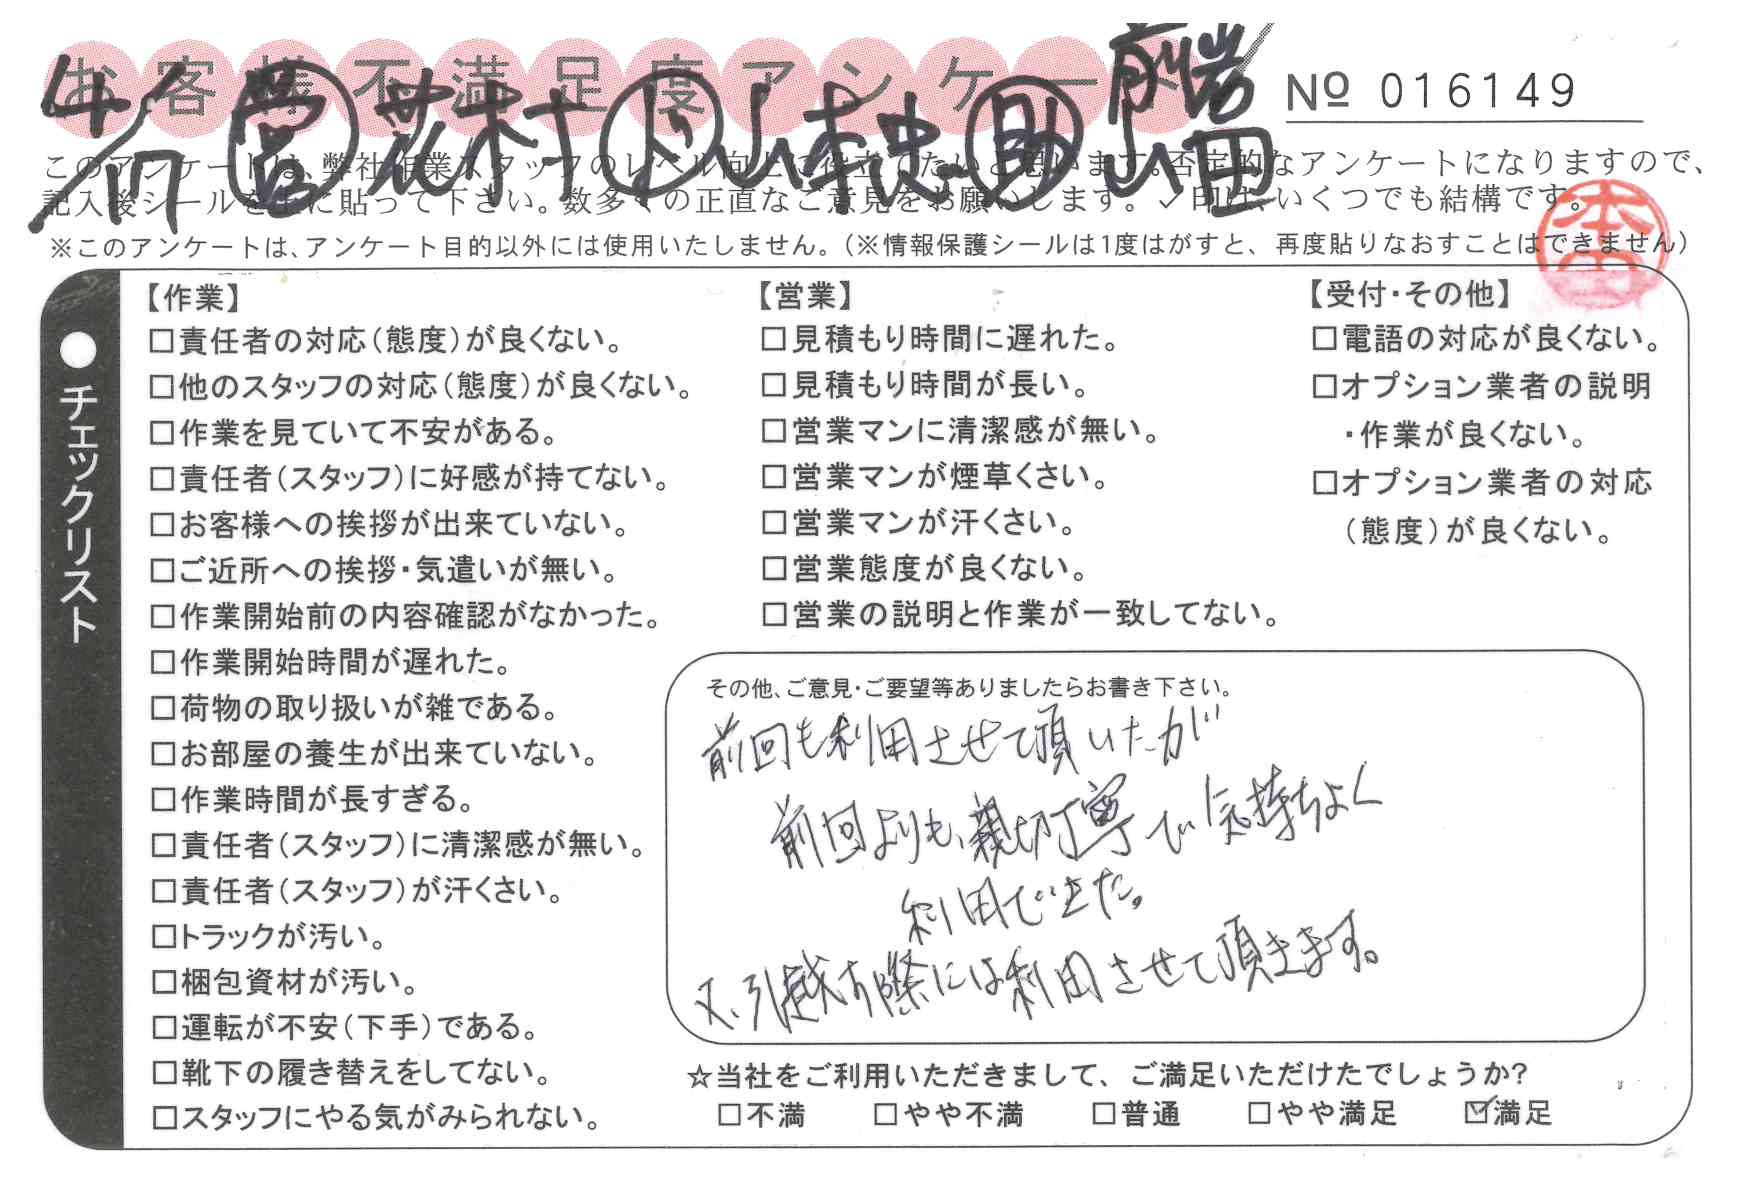 お客様不満足度アンケート
№ 016149
4/17 営 花村 ド 山本忠 助 前岩 山田
このアンケートは、弊社作業スタッフのレベル向上に役立てたいと思います。否定的なアンケートになりますので、
記入後シールを上に貼って下さい。数多くの正直なご意見をお願いします。✓印は、いくつでも結構です。
※このアンケートは、アンケート目的以外には使用いたしません。(※情報保護シールは1度はがすと、再度貼りなおすことはできません)
チェックリスト
【作業】
□責任者の対応(態度)が良くない。
□他のスタッフの対応(態度)が良くない。
□作業を見ていて不安がある。
□責任者(スタッフ)に好感が持てない。
□お客様への挨拶が出来ていない。
□ご近所への挨拶・気遣いが無い。
□作業開始前の内容確認がなかった。
□作業開始時間が遅れた。
□荷物の取り扱いが雑である。
□お部屋の養生が出来ていない。
□作業時間が長すぎる。
□責任者(スタッフ)に清潔感が無い。
□責任者(スタッフ)が汗くさい。
□トラックが汚い。
□梱包資材が汚い。
□運転が不安(下手)である。
□靴下の履き替えをしてない。
□スタッフにやる気がみられない。
【営業】
□見積もり時間に遅れた。
□見積もり時間が長い。
□営業マンに清潔感が無い。
□営業マンが煙草くさい。
□営業マンが汗くさい。
□営業態度が良くない。
□営業の説明と作業が一致してない。
【受付・その他】
□電語の対応が良くない。
□オプション業者の説明
・作業が良くない。
□オプション業者の対応
(態度)が良くない。
その他、ご意見・ご要望等ありましたらお書き下さい。
前回も利用させて頂いたが
前回よりも、親切丁寧で気持ちよく
利用できた。
又、引越す際には利用させて頂きます。
☆当社をご利用いただきまして、ご満足いただけたでしょうか?
□不満 □やや不満 □普通 □やや満足 ☑満足